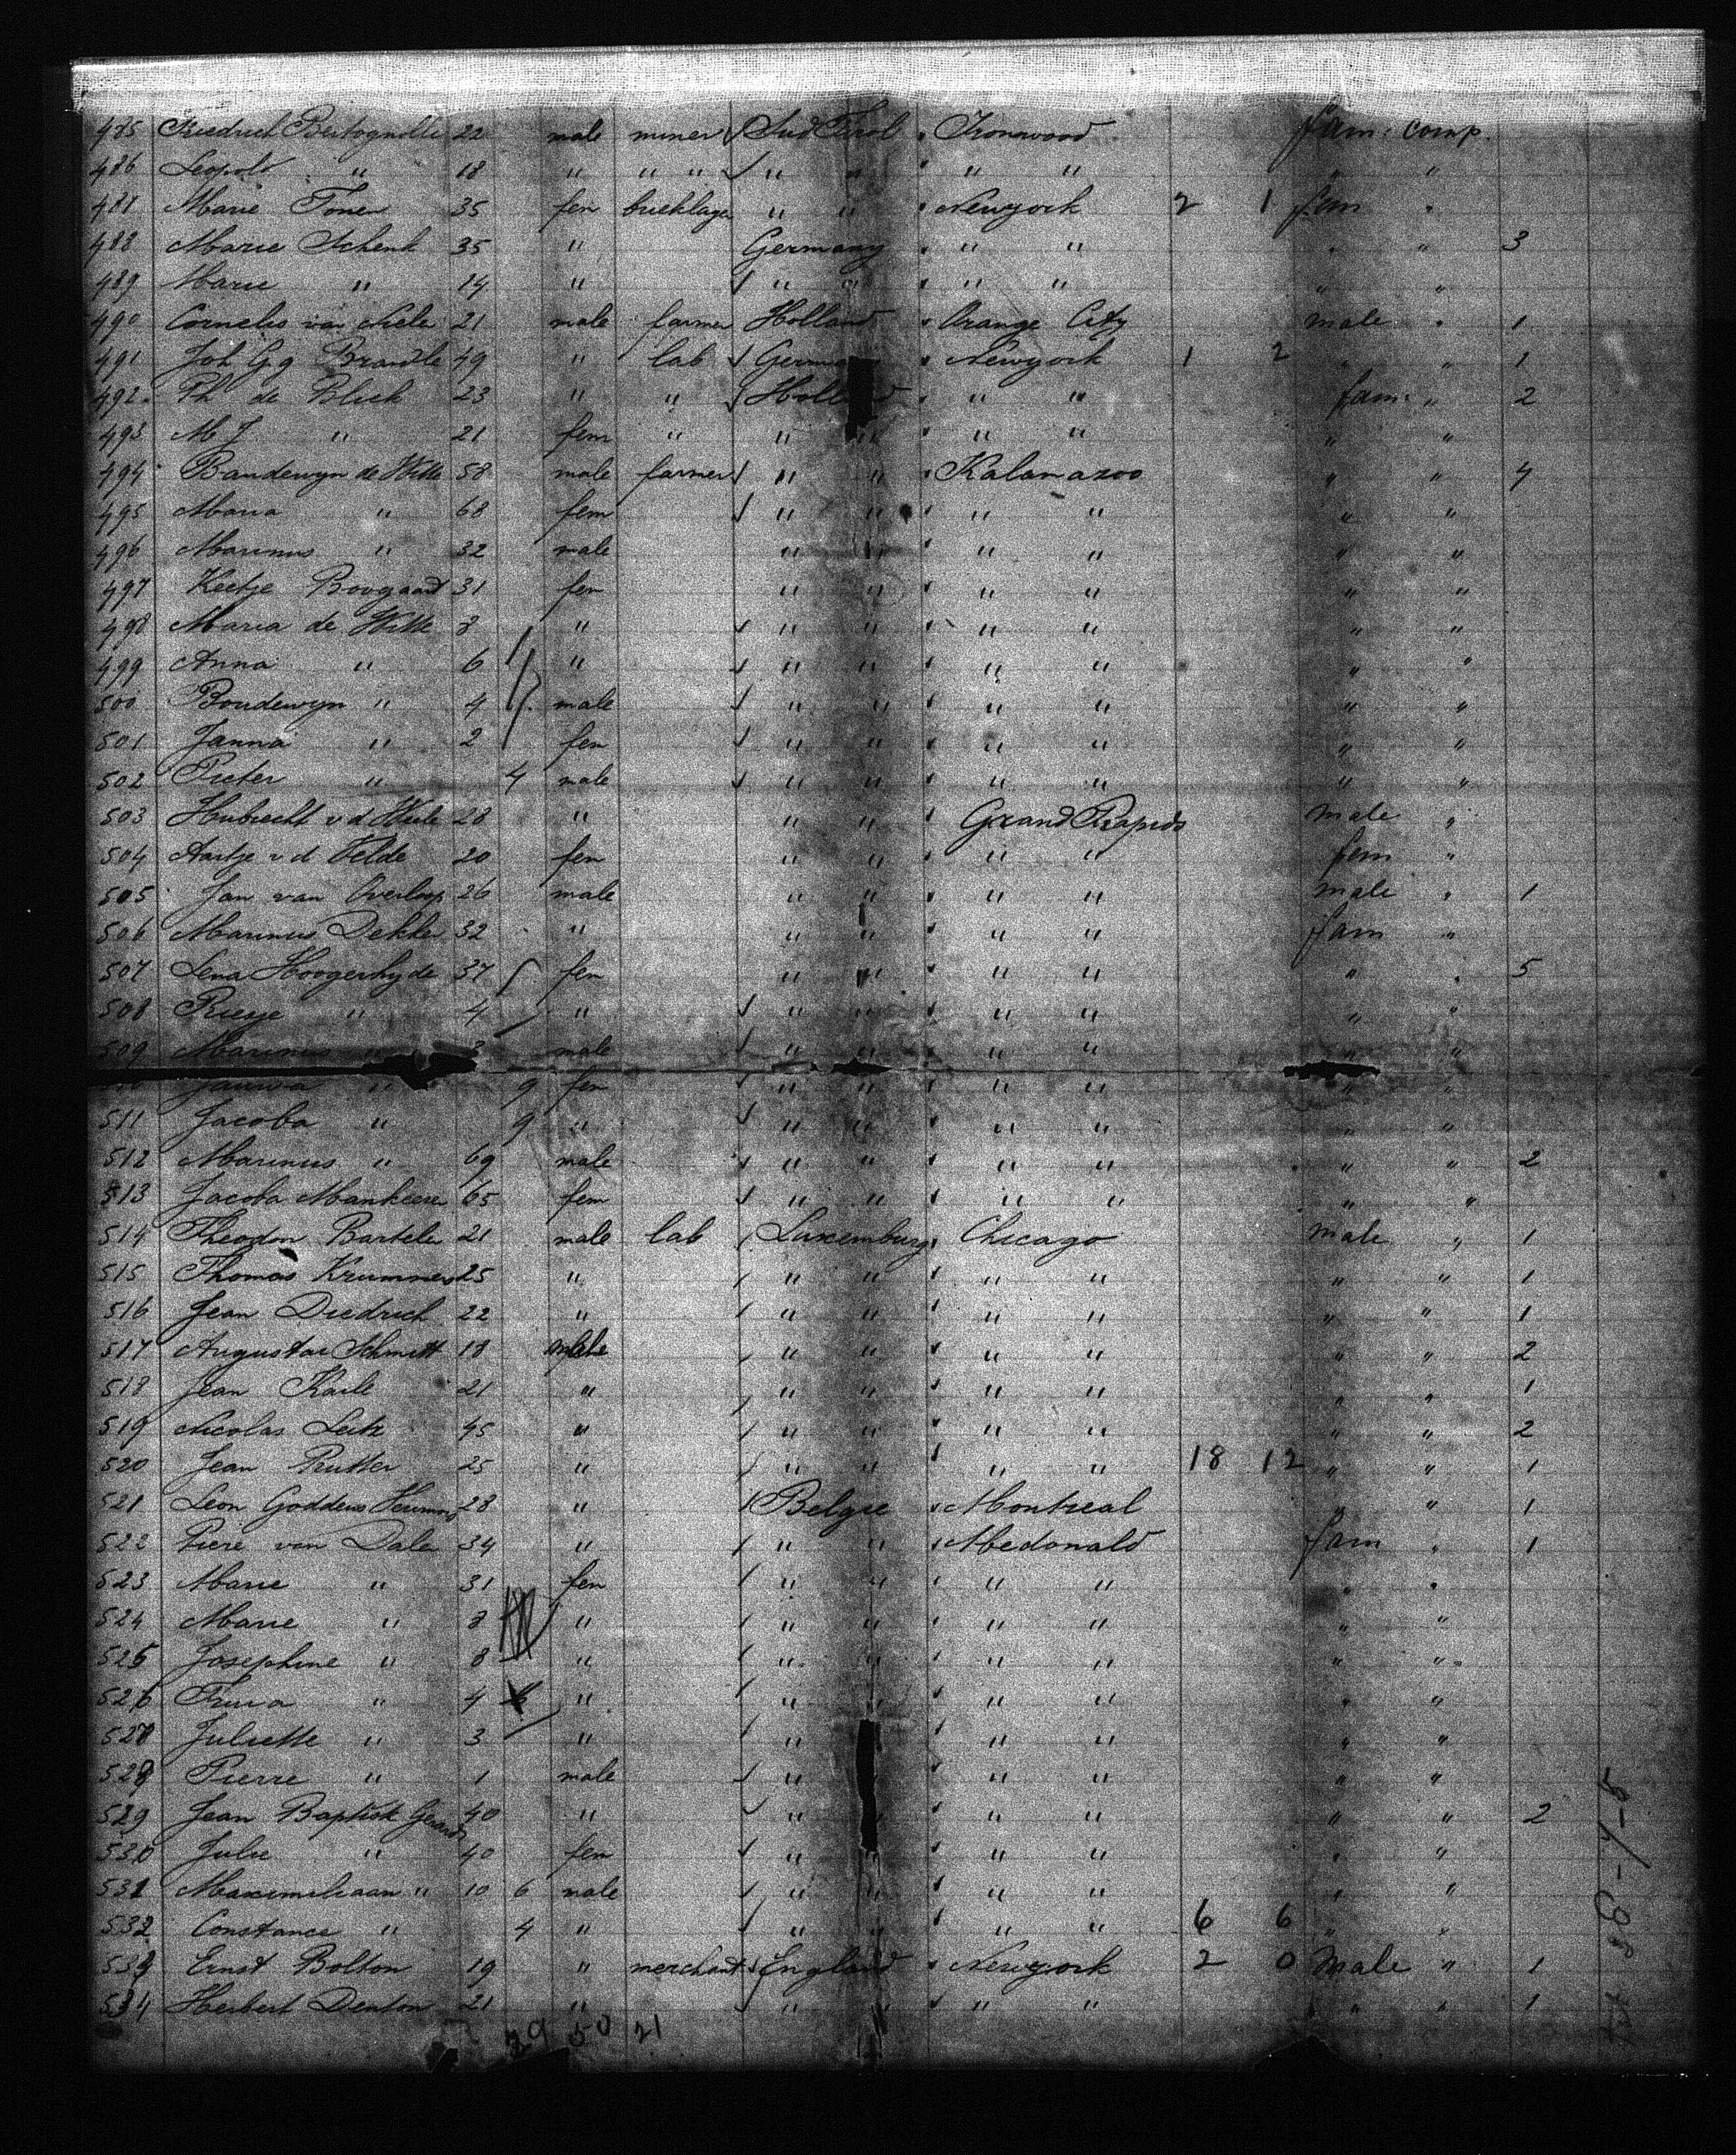 485 Friedrich Bertognolli 22 male miner Sud Tirol Ironwood fam: comp.
486 Leopold " 18 " " " " " " " " "
487 Marie Toner 35 fem " " Newyork 2 1 fam "
488 Marie Schenk 35 " Germany " " " " 3
489 Marie " 14 " " " " " " "
490 Cornelis van 21 male farmer Holland Orange City male " 1
491 Joh Gg Brandle 49 " lab Germany Newyork 1 2 " " 1
492 Ph de Block 23 " " Holland " " fam: " 2
493 M J " 21 fem " " " " " " "
494 Boudewyn de Witte 58 male farmer " " Kalamazoo " " 4
495 Maria " 68 fem " " " " " "
496 Marinus " 32 male " " " " " "
497 Keetje Boogaart 31 fem " " " " " "
498 Maria de Witte 8 " " " " " " "
499 Anna " 6 " " " " " " "
500 Boudewyn " 4 male " " " " " "
501 Janna " 2 fem " " " " " "
502 Pieter " 4 male " " " " " "
503 Hubrecht v d 28 " " " Grand Rapids male "
504 Aartje v d Velde 20 fem " " " " fem "
505 Jan van Overloop 26 male " " " " male " 1
506 Marinus Dekker 32 " " " " " fam "
507 Lena Hoogerhyde 37 fem " " " " " " 5
508 " 4 " " " " " " "
509 Marinus " 3 male " " " " " "
" 9 fem " " " " " "
511 Jacoba " 9 " " " " " " "
512 Marinus " 69 male " " " " " " 2
513 Jacoba 65 fem " " " " " "
514 Theodor Bartele 21 male lab Luxemburg Chicago male " 1
515 Thomas 25 " " " " " " " 1
516 Jean Diedrich 22 " " " " " " " 1
517 Schmitt 18 male " " " " " " 2
518 Jean 21 " " " " " " " 1
519 Nicolas 45 " " " " " " " 2
520 Jean 25 " " " " " 18 12 " " 1
521 Leon Goddens 28 " Belgie Montreal " " 1
522 Piere van Dale 34 " " " Mcdonald fam " 1
523 Marie " 31 fem " " " " " "
524 Marie " 8 " " " " " " "
525 Josephine " 8 " " " " " " "
526 " 4 " " " " " " "
527 Juliette " 3 " " " " " " "
528 Pierre " 1 male " " " " " "
529 Jean Baptist 40 " " " " " " " 2
530 Julie " 40 fem " " " " " "
531 Maximiliaan " 10 6 male " " " " " "
532 Constance " 4 " " " " " 6 6 " "
533 Ernst Bolton 19 " merchant England Newyork 2 0 male " 1
534 Herbert Denton 21 " " " " " " " 1
50 21